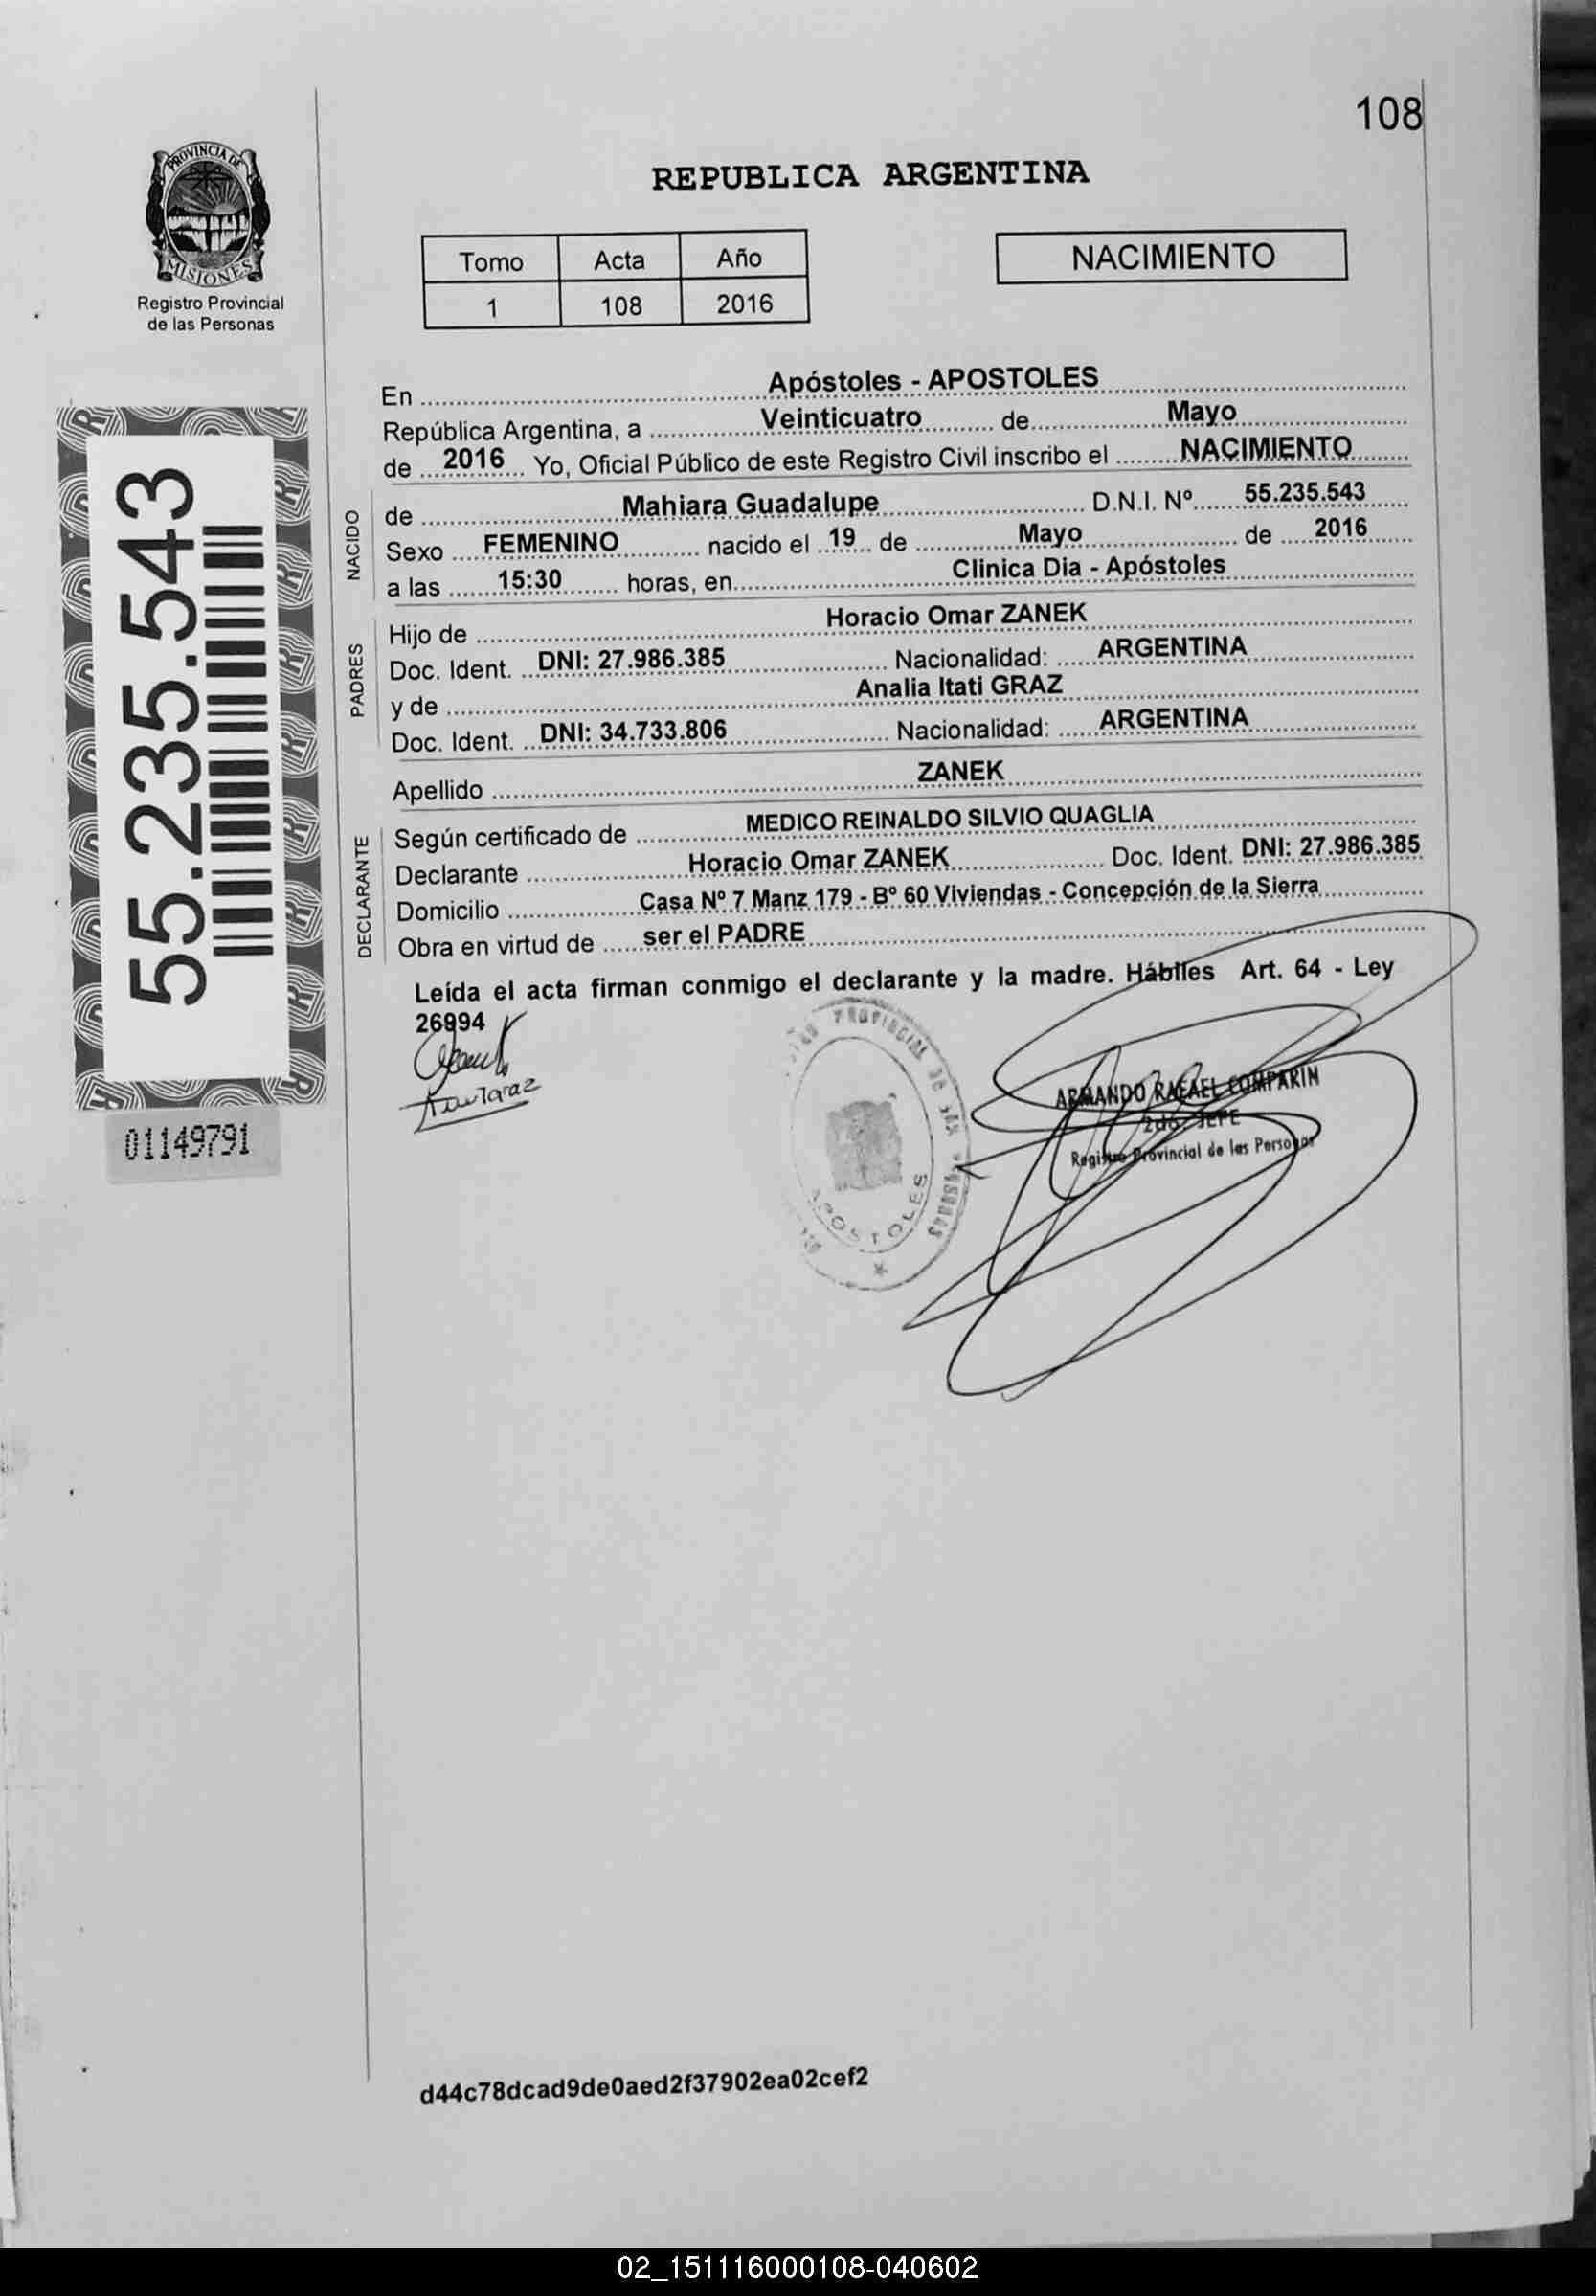 108
PROVINCIA DE
MISIONES
Registro Provincial
de las Personas
REPUBLICA ARGENTINA
Tomo Acta Año
1 108 2016
NACIMIENTO
En Apóstoles - APOSTOLES
República Argentina, a Veinticuatro de Mayo
de 2016 Yo, Oficial Público de este Registro Civil inscribo el NACIMIENTO
NACIDO
de Mahiara Guadalupe D.N.I. Nº 55.235.543
Sexo FEMENINO nacido el 19 de Mayo de 2016
a las 15:30 horas, en Clinica Dia - Apóstoles
PADRES
Hijo de Horacio Omar ZANEK
Doc. Ident. DNI: 27.986.385 Nacionalidad: ARGENTINA
y de Analia Itati GRAZ
Doc. Ident. DNI: 34.733.806 Nacionalidad: ARGENTINA
Apellido ZANEK
DECLARANTE
Según certificado de MEDICO REINALDO SILVIO QUAGLIA
Declarante Horacio Omar ZANEK Doc. Ident. DNI: 27.986.385
Domicilio Casa Nº 7 Manz 179 - Bº 60 Viviendas - Concepción de la Sierra
Obra en virtud de ser el PADRE
Leída el acta firman conmigo el declarante y la madre. Hábiles Art. 64 - Ley
26994
55.235.543
01149791
PROVINCIAL DE LAS PERSONAS
APOSTOLES
ARMANDO RAFAEL COMPARIN
2do. JEFE
Registro Provincial de las Personas
d44c78dcad9de0aed2f37902ea02cef2
02_151116000108-040602